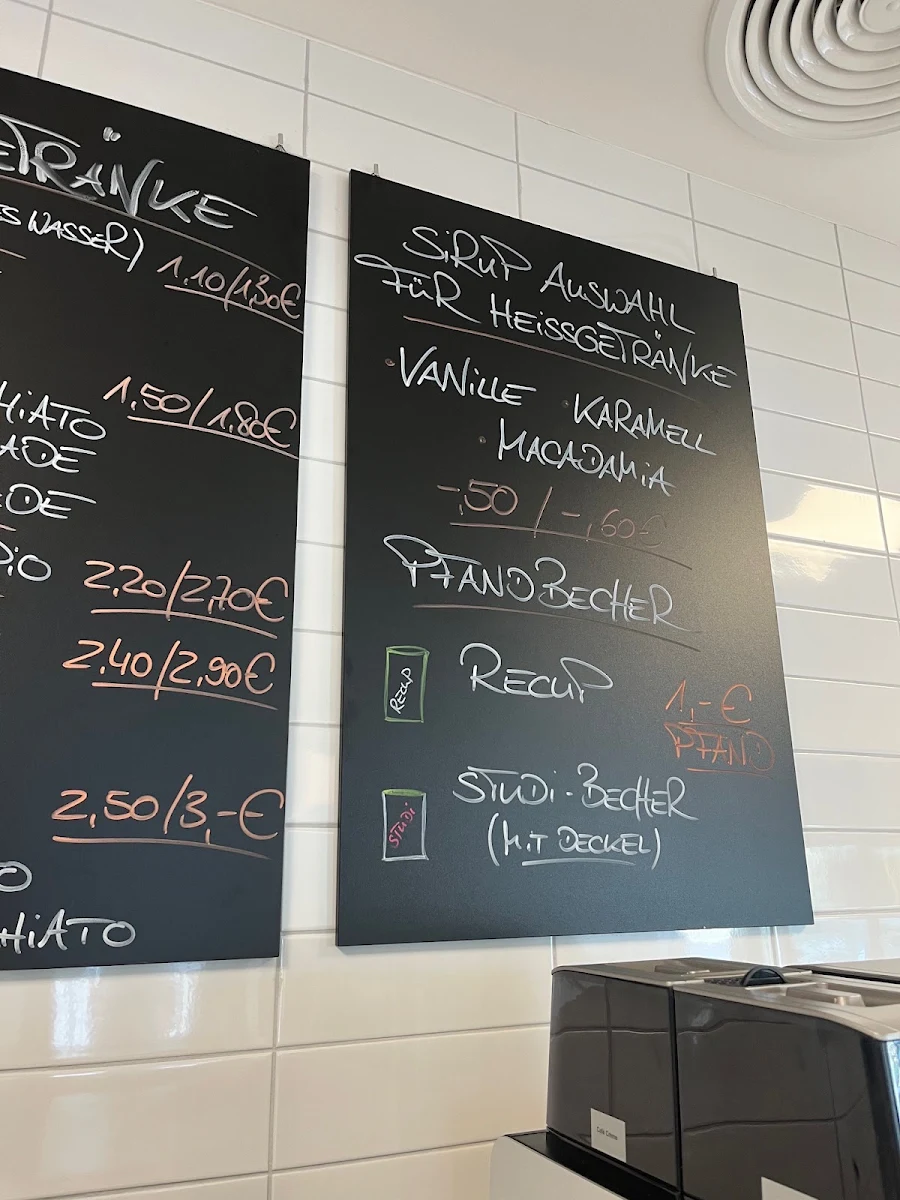 ETRÄNKE
ES WASSER)
1,10/1,30€
HIATO
1,50/1,80€
ADE
DE
DIO
2,20/2,70€
2,40/2,90€
2,50/3,-€
O
HIATO
SIRUP AUSWAHL
FÜR HEISSGETRÄNKE
· VANILLE · KARAMELL
· MACADAMIA
-,50 / -,60€
PFANDBECHER
RECUP
RECUP
1,- €
PFAND
STUDI
STUDI-BECHER
(MIT DECKEL)
Café Crème